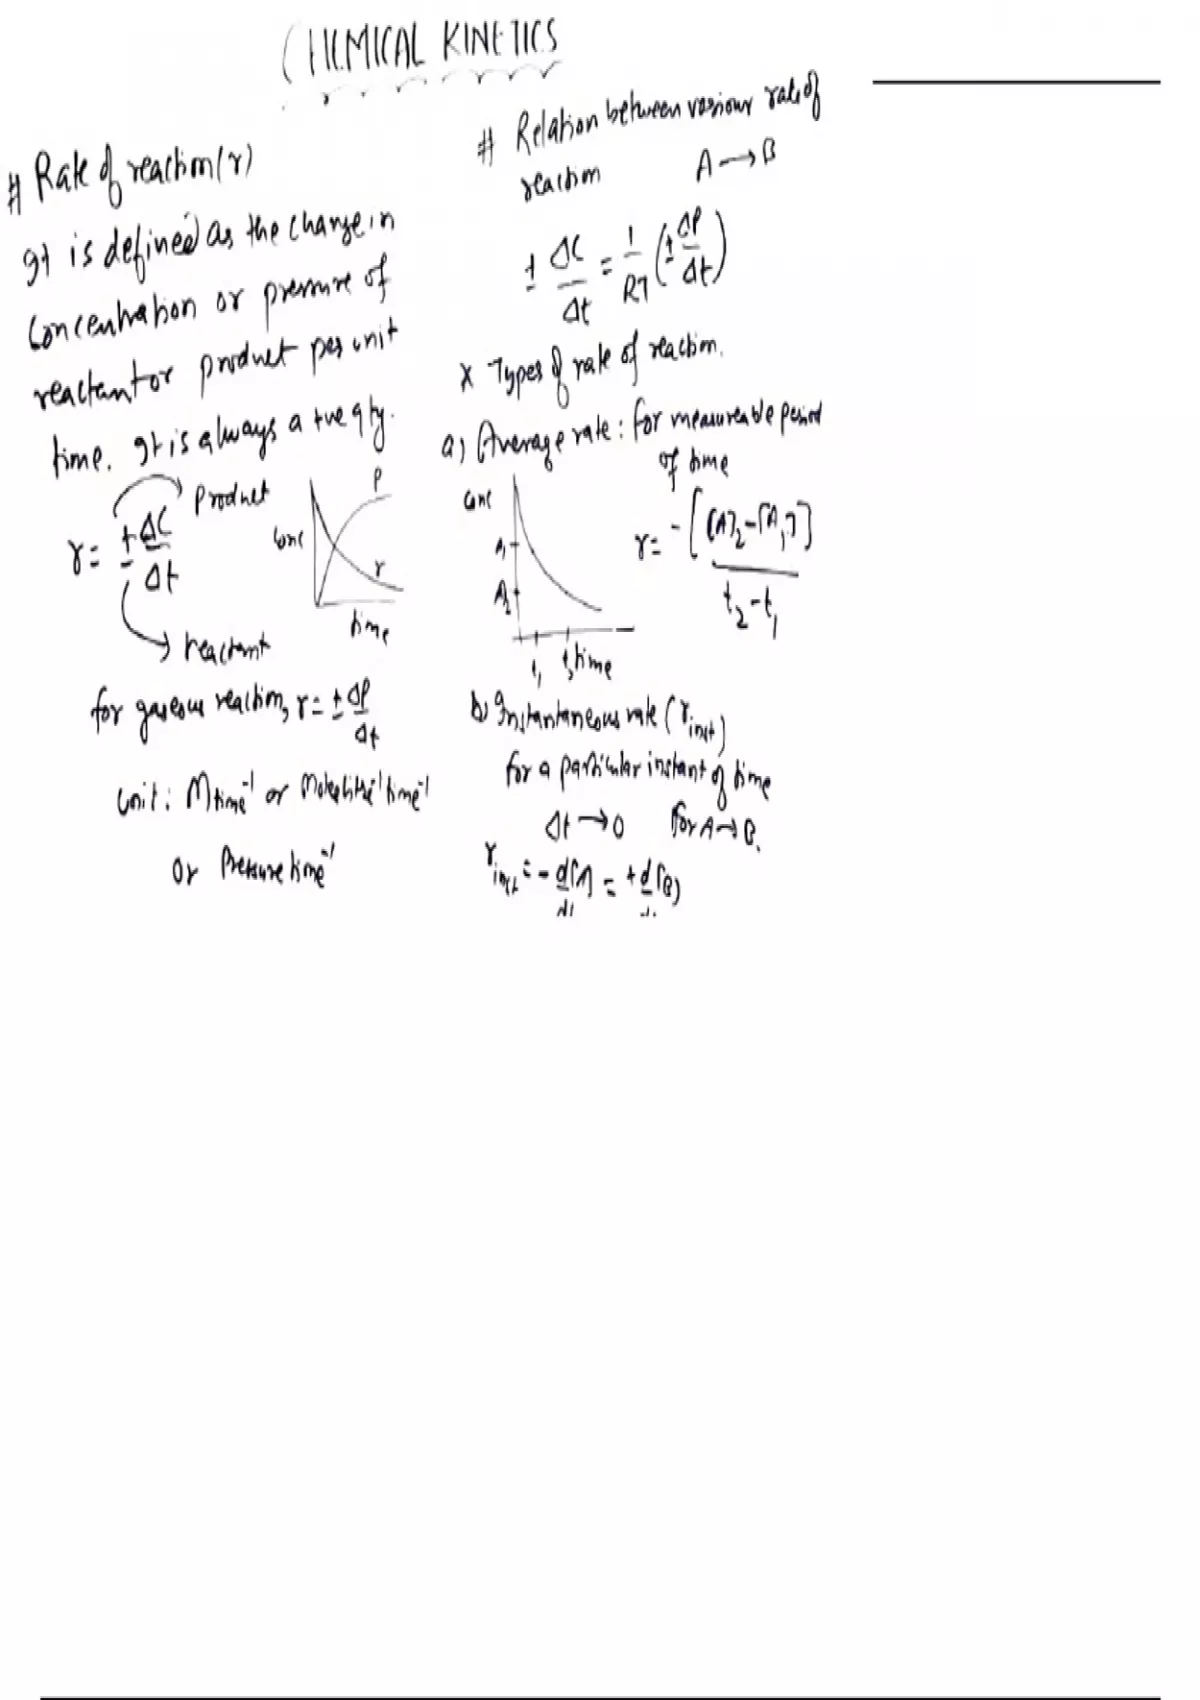 CHEMICAL KINETICS
# Rate of reaction (r)
It is defined as the change in
Concentration or pressure of
reactant or product per unit
time. It is always a +ve qty.
r = ± ΔC/Δt
Product
reactant
Conc
P
r
time
for gaseous reaction, r = ± ΔP/Δt
Unit: M time⁻¹ or Mole litre⁻¹ time⁻¹
Or Pressure time⁻¹
# Relation between various rate of
reaction A → B
± ΔC/Δt = 1/RT (± ΔP/Δt)
x Types of rate of reaction.
a) Average rate: for measureable period
of time
Conc
A₁
A₂
t₁
time
r = -[[A]₂-[A₁]]/t₂-t₁
b) Instantaneous rate (r inst)
for a particular instant of time
Δt → 0 for A → B.
r inst = - d[A]/dt = + d[B]